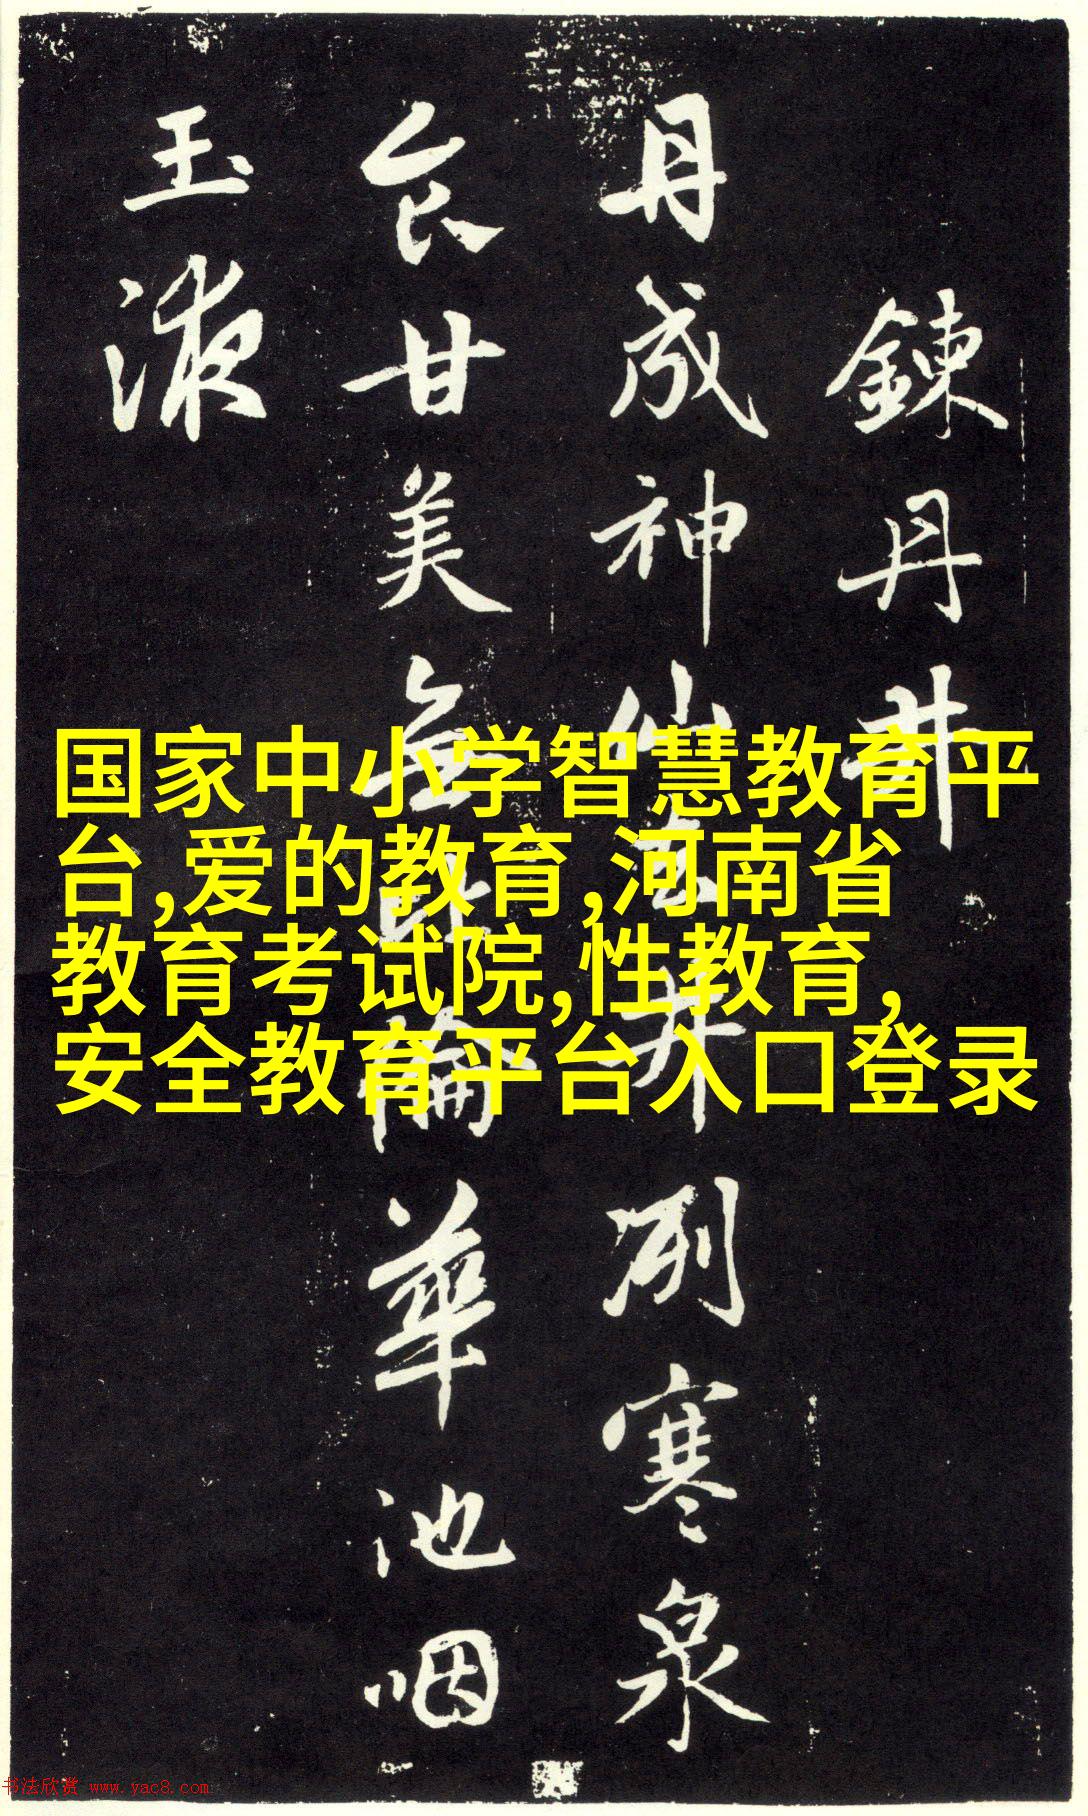 鍊丹井
丹成神仙去井冽寒泉
食甘美無比倫華池咽
玉液
国家中小学智慧教育平
台,爱的教育,河南省
教育考试院,性教育,
安全教育平台入口登录
书法欣赏 www.yac8.com